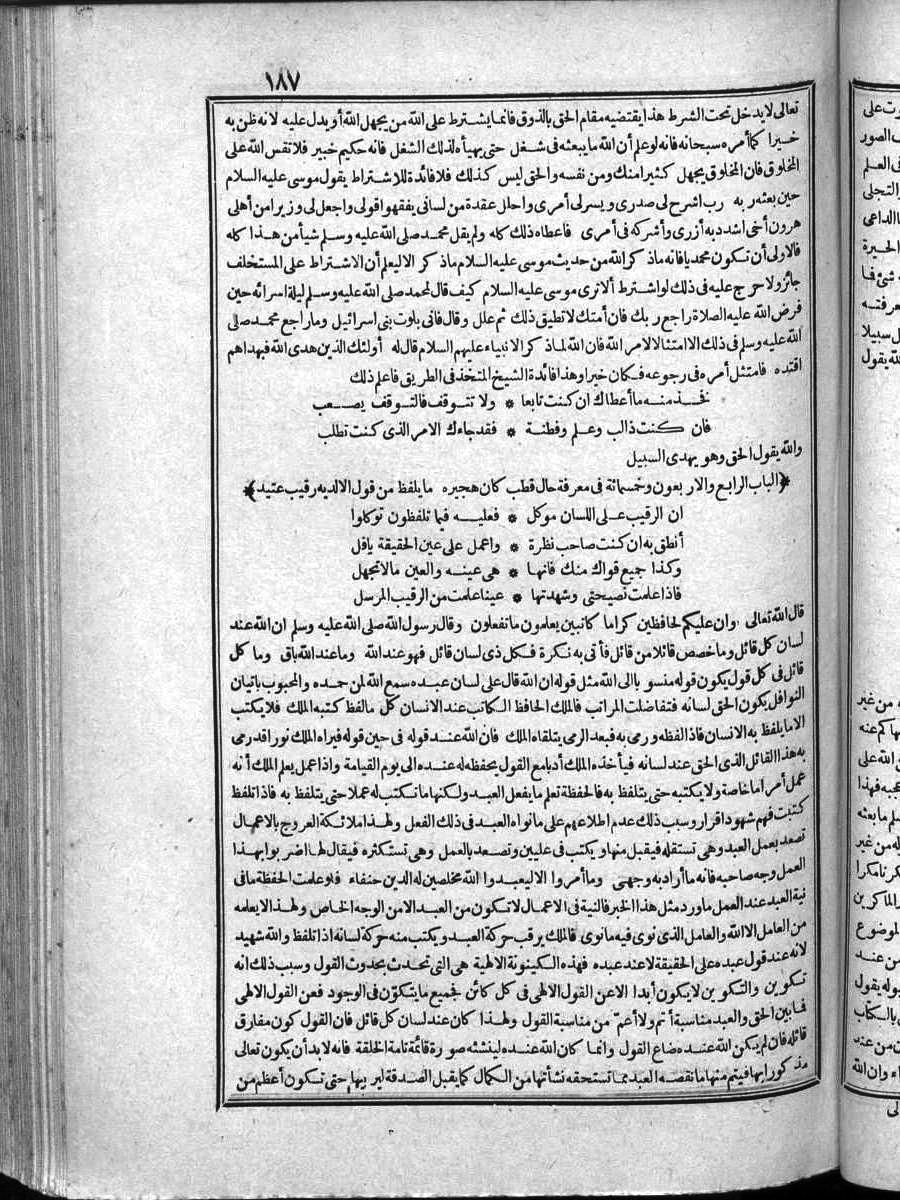 ١٨٧
تعالى لا يدخل تحت الشرط هذا يقتضيه مقام الحق بالذوق فانما يشترط على الله من يجهل الله أو يدل عليه لانه ظن به
خيرا كما أمره سبحانه فانه لو علم أن الله ما يبعثه فى شغل حتى يهيأه لذلك الشغل فانه حكيم خبير فلا تقس الله على
المخلوق فان المخلوق يجهل كثيرا منك ومن نفسه والحق ليس كذلك فلا فائدة للاشتراط يقول موسى عليه السلام
حين بعثه ربه رب اشرح لى صدرى ويسر لى أمرى واحلل عقدة من لسانى يفقهوا قولى واجعل لى وزيرا من أهلى
هرون أخى اشدد به أزرى وأشركه فى أمرى فاعطاه ذلك كله ولم يقل محمد صلى الله عليه وسلم شيأ من هذا كله
فالاولى أن تكون محمديا فانه ما ذكر الله من حديث موسى عليه السلام ما ذكر الا ليعلم أن الاشتراط على المستخلف
جائز ولا حرج عليه فى ذلك لو اشترط ألا ترى موسى عليه السلام كيف قال لمحمد صلى الله عليه وسلم ليلة اسرائه حين
فرض الله عليه الصلاة راجع ربك فان أمتك لا تطيق ذلك ثم علل وقال فانى بلوت بنى اسرائيل وما راجع محمد صلى
الله عليه وسلم فى ذلك الا امتثالا لامر الله فان الله لما ذكر الانبياء عليهم السلام قال له أولئك الذين هدى الله فبهداهم
اقتده فامتثل أمره فى رجوعه فكان خيرا وهذا فائدة الشيخ المتخذ فى الطريق فاعلم ذلك
نفخذ منه ما أعطاك ان كنت تابعا * ولا تتوقف فالتوقف يصعب
فان كنت ذا لب وعلم وفطنة * فقد جاءك الامر الذى كنت تطلب
والله يقول الحق وهو يهدى السبيل
﴿الباب الرابع والاربعون وخمسمائة فى معرفة حال قطب كان هجيره ما يلفظ من قول الا لديه رقيب عتيد﴾
ان الرقيب على اللسان موكل * فعليه فيما تلفظون توكلوا
أنطق به ان كنت صاحب نظرة * واعمل على عين الحقيقة يا فل
وكذا جميع قواك منك فانها * هى عينه والعين مالا تجهل
فاذا علمت نصيحتى وشهدتها * عينا علمت من الرقيب المرسل
قال الله تعالى وان عليكم لحافظين كراما كاتبين يعلمون ما تفعلون وقال رسول الله صلى الله عليه وسلم ان الله عند
لسان كل قائل وما خصص قائلا من قائل فأتى به نكرة فكل ذى لسان قائل فهو عند الله وما عند الله باق وما كل
قائل فى كل قول يكون قوله منسوبا الى الله مثل قوله ان الله قال على لسان عبده سمع الله لمن حمده والمحبوب باتيان
النوافل يكون الحق لسانه فتفاضلت المراتب فالملك الحافظ الكاتب عند الانسان كل ما لفظ كتبه الملك فلا يكتب
الا ما يلفظ به الانسان فاذا لفظه ورمى به فبعد الرمى يتلقاه الملك فان الله عند قوله فى حين قوله فيراه الملك نورا قد رمى
به هذا القائل الذى الحق عند لسانه فيأخذه الملك أدبا مع القول يحفظه له عنده الى يوم القيامة واذا عمل يعلم الملك أنه
عمل أمرا ما خاصة ولا يكتبه حتى يتلفظ به فالحفظة تعلم ما يفعل العبد ولكنها ما تكتب له عملا حتى يتلفظ به فاذا تلفظ
كتبت فهم شهود اقرار وسبب ذلك عدم اطلاعهم على ما نواه العبد فى ذلك الفعل ولهذا ملائكة العروج بالاعمال
تصعد بعمل العبد وهى تستقله فيقبل منها ويكتب فى عليين وتصعد بالعمل وهى تستكثره فيقال لها اضربوا بهذا
العمل وجه صاحبه فانه ما أراد به وجهى وما أمروا الا ليعبدوا الله مخلصين له الدين حنفاء فلو علمت الحفظة ما فى
نية العبد عند العمل ما ورد مثل هذا الخبر فالنية فى الاعمال لا تكون من العبد الا من الوجه الخاص ولهذا لا يعلمه
من العامل الا الله والعامل الذى نوى فيه ما نوى فالملك يرقب حركة العبد ويكتب منه حركة لسانه اذا تلفظ والله شهيد
لانه عند قول عبده على الحقيقة لا عند عبده فهذه الكينونة الالهية هى التى تحدث بحدوث القول وسبب ذلك انه
تكوين والتكوين لا يكون أبدا الا عن القول الالهى فى كل كائن فجميع ما يتكوّن فى الوجود فعن القول الالهى
فما بين الحق والعبد مناسبة أتم ولا أعمّ من مناسبة القول ولهذا كان عند لسان كل قائل فان القول كون مفارق
قائله فان لم يكن الله عنده ضاع القول وانما كان الله عنده لينشئه صورة قائمة تامة الخلقة فانه لا بد أن يكون تعالى
مذكورا بها فيتم منها ما نقصه العبد مما تستحقه نشأتها من الكمال كما يقبل الصدقة ليربيها حتى تكون أعظم من